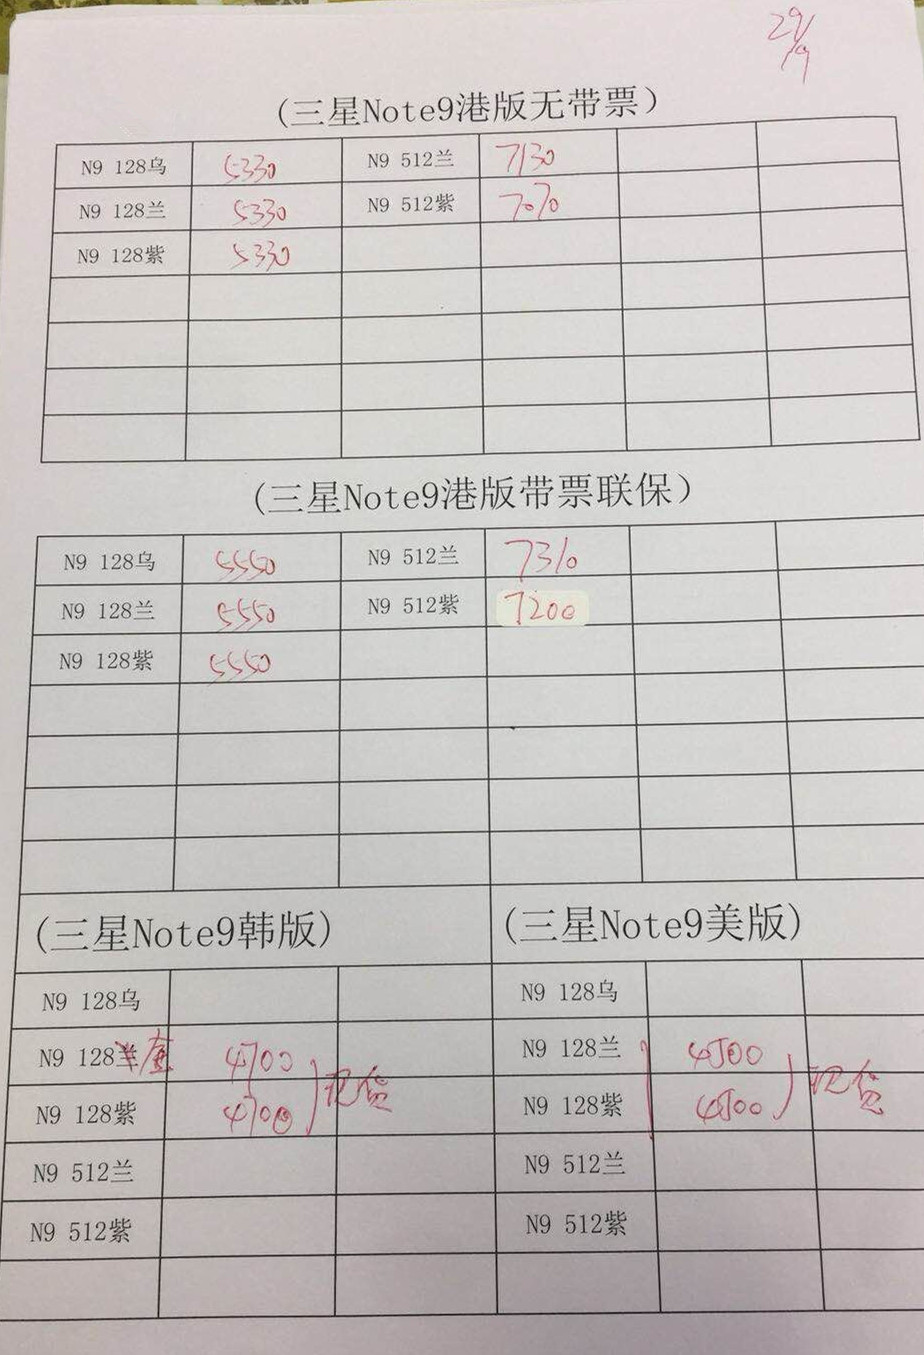 29/9
(三星Note9港版无带票)
N9 128乌 5330 N9 512兰 7130
N9 128兰 5330 N9 512紫 7070
N9 128紫 5330
(三星Note9港版带票联保)
N9 128乌 5550 N9 512兰 7310
N9 128兰 5550 N9 512紫 7200
N9 128紫 5550
(三星Note9韩版) (三星Note9美版)
N9 128乌 N9 128乌
N9 128兰 4700 现货 N9 128兰 4500 现货
N9 128紫 4700 N9 128紫 4500
N9 512兰 N9 512兰
N9 512紫 N9 512紫